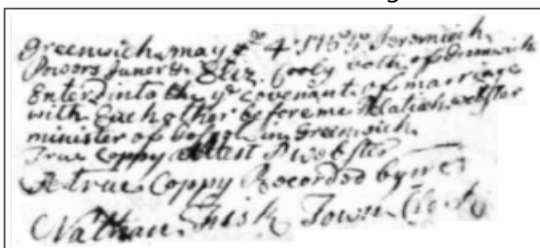 Greenwich may ye 4: 1755 Jeremiah
Powers Juner & Eliz. Cooly both of Greenwich
Enterd into the ye covenant of marriage
with Each other before me webster
minister of in Greenwich
True Coppy Attest P webster
A true Coppy Recorded by me
Nathan Fisk Town Clerk